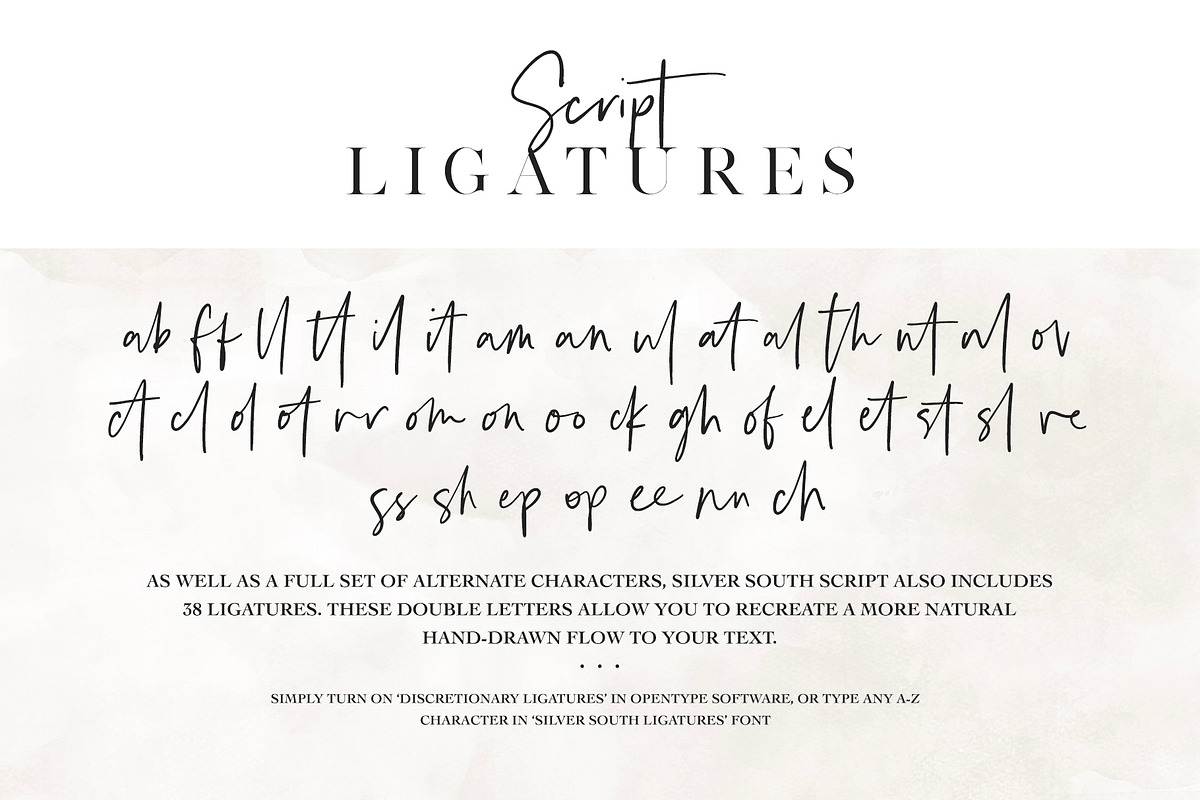 Script
LIGATURES
ab ff ll tt il it am an ul at al th nt nl ov
ct cl ol ot rr om on oo ck gh of el et st sl re
ss sh ep op ee nn ch
AS WELL AS A FULL SET OF ALTERNATE CHARACTERS, SILVER SOUTH SCRIPT ALSO INCLUDES
38 LIGATURES. THESE DOUBLE LETTERS ALLOW YOU TO RECREATE A MORE NATURAL
HAND-DRAWN FLOW TO YOUR TEXT.
. . .
SIMPLY TURN ON ‘DISCRETIONARY LIGATURES’ IN OPENTYPE SOFTWARE, OR TYPE ANY A-Z
CHARACTER IN ‘SILVER SOUTH LIGATURES’ FONT